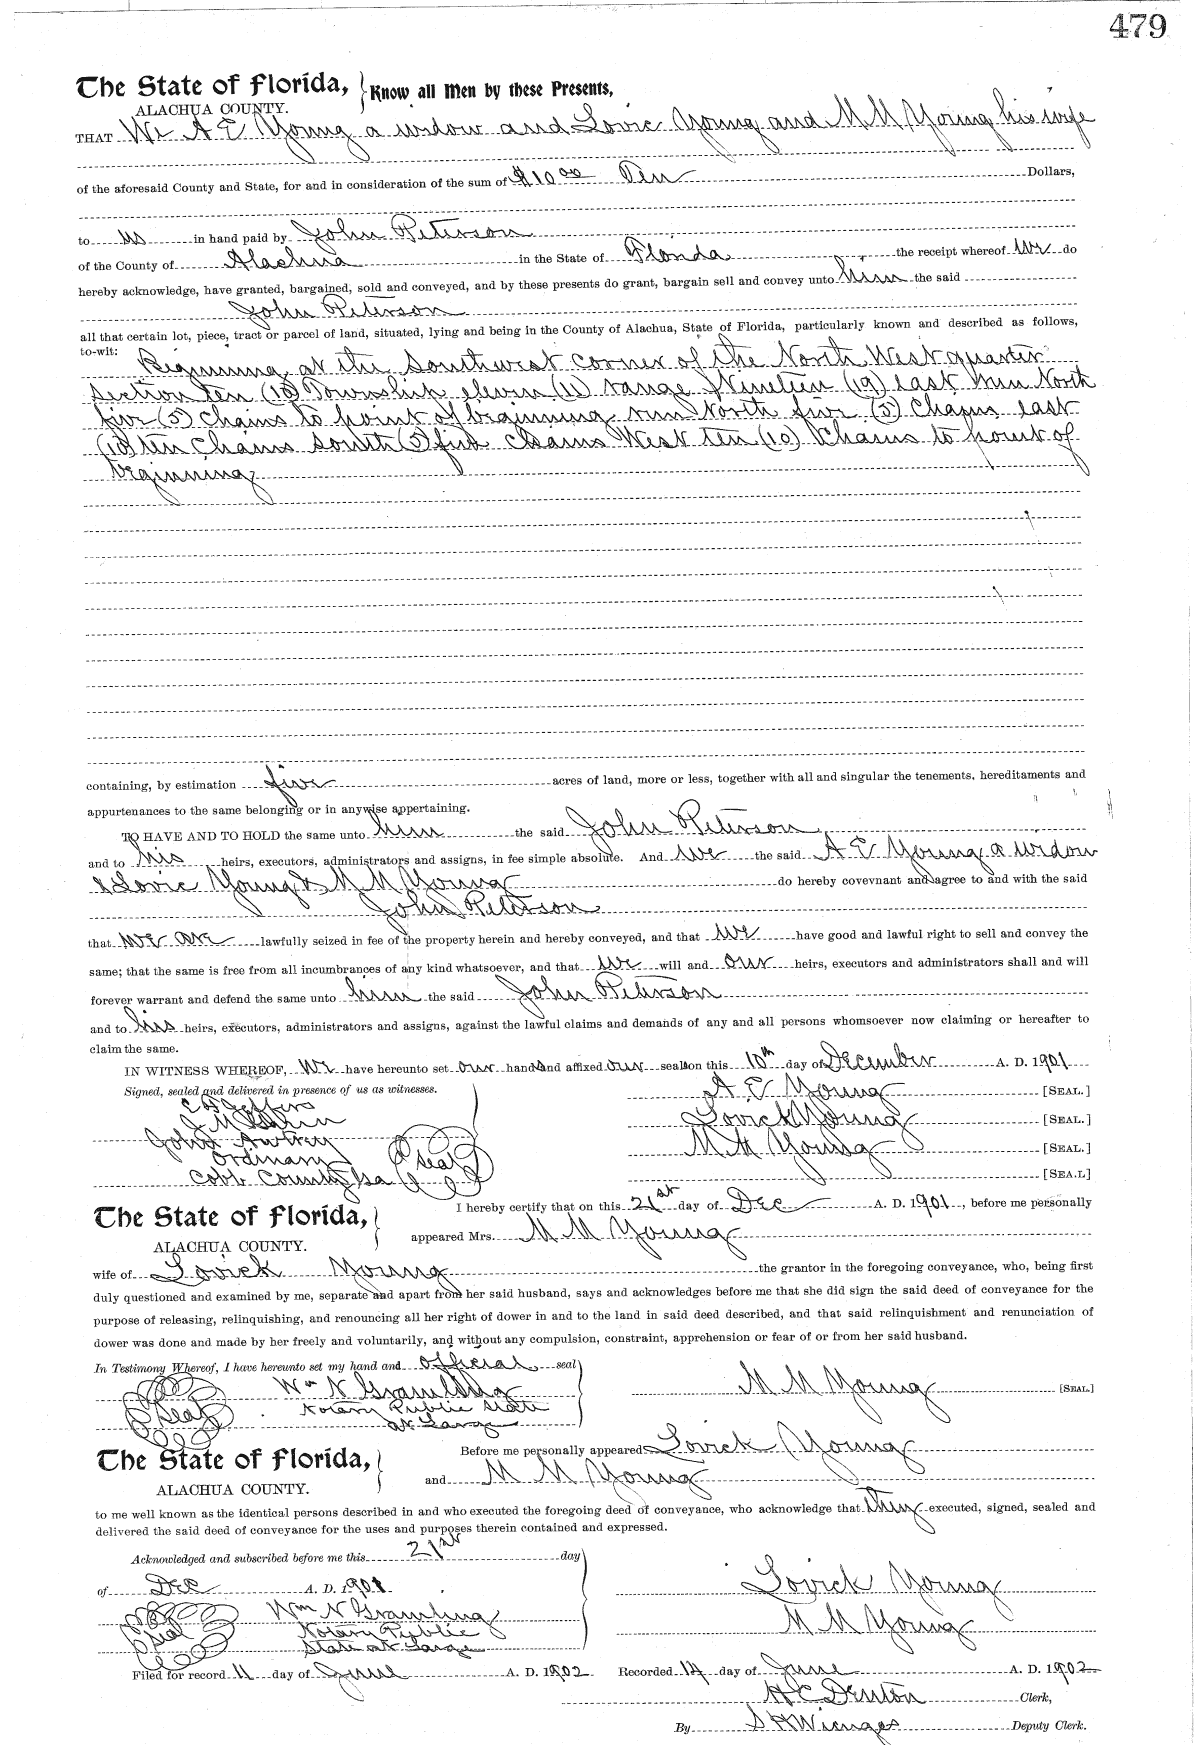 479
The State of Florida, Know all Men by these Presents,
ALACHUA COUNTY.
THAT We A E Young a widow and Lovic Young and M M Young his wife
of the aforesaid County and State, for and in consideration of the sum of $10.00 Ten Dollars,
to us in hand paid by John Peterson
of the County of Alachua in the State of Florida the receipt whereof we do
hereby acknowledge, have granted, bargained, sold and conveyed, and by these presents do grant, bargain sell and convey unto him the said
John Peterson
all that certain lot, piece, tract or parcel of land, situated, lying and being in the County of Alachua, State of Florida, particularly known and described as follows,
to-wit: Beginning at the Southwest corner of the North West quarter
Section ten (10) Township eleven (11) range Nineteen (19) east run North
five (5) chains to point of beginning run North five (5) chains east
(10) ten chains South (5) five chains West ten (10) chains to point of
beginning
containing, by estimation five acres of land, more or less, together with all and singular the tenements, hereditaments and
appurtenances to the same belonging or in anywise appertaining.
TO HAVE AND TO HOLD the same unto him the said John Peterson
and to his heirs, executors, administrators and assigns, in fee simple absolute. And we the said A E Young a widow
& Lovic Young & M M Young do hereby covevnant and agree to and with the said
John Peterson
that we are lawfully seized in fee of the property herein and hereby conveyed, and that we have good and lawful right to sell and convey the
same; that the same is free from all incumbrances of any kind whatsoever, and that we will and our heirs, executors and administrators shall and will
forever warrant and defend the same unto him the said John Peterson
and to his heirs, executors, administrators and assigns, against the lawful claims and demands of any and all persons whomsoever now claiming or hereafter to
claim the same.
IN WITNESS WHEREOF, We have hereunto set our hands and affixed our seals on this 10th day of December A. D. 1901
Signed, sealed and delivered in presence of us as witnesses. A E Young [SEAL.]
Lovick Young [SEAL.]
John Awtrey M M Young [SEAL.]
Ordinary Seal
Cobb County Ga [SEAL.]
The State of Florida, I hereby certify that on this 21st day of Dec A. D. 1901, before me personally
ALACHUA COUNTY. appeared Mrs. M M Young
wife of Lovick Young the grantor in the foregoing conveyance, who, being first
duly questioned and examined by me, separate and apart from her said husband, says and acknowledges before me that she did sign the said deed of conveyance for the
purpose of releasing, relinquishing, and renouncing all her right of dower in and to the land in said deed described, and that said relinquishment and renunciation of
dower was done and made by her freely and voluntarily, and without any compulsion, constraint, apprehension or fear of or from her said husband.
In Testimony Whereof, I have hereunto set my hand and official seal
Wm N Gramling M M Young [SEAL]
Seal Notary Public State
at Large
The State of Florida, Before me personally appeared Lovick Young
ALACHUA COUNTY. and M M Young
to me well known as the identical persons described in and who executed the foregoing deed of conveyance, who acknowledge that they executed, signed, sealed and
delivered the said deed of conveyance for the uses and purposes therein contained and expressed.
Acknowledged and subscribed before me this 21st day
of Dec A. D. 1901 Lovick Young
Seal Wm N Gramling M M Young
Notary Public
State at Large
Filed for record 11 day of June A. D. 1902 Recorded 14 day of June A. D. 1902
H C Denton Clerk,
By S H Wienges Deputy Clerk.